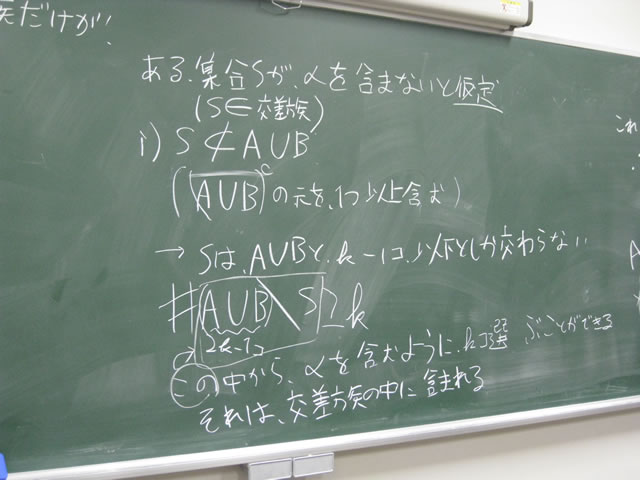 だけが
ある、集合Sが、αを含まないと仮定
(S∈交差族)
i) S⊄A∪B
(A∪B^cの元を、1つ以上含む)
→ Sは、A∪Bと、k-1コ以下としか交わらない
#A∪B\S≧k
2k-1コ
この中から、αを含むように、kコ選ぶことができる
それは、交差族の中に含まれる
これ
A